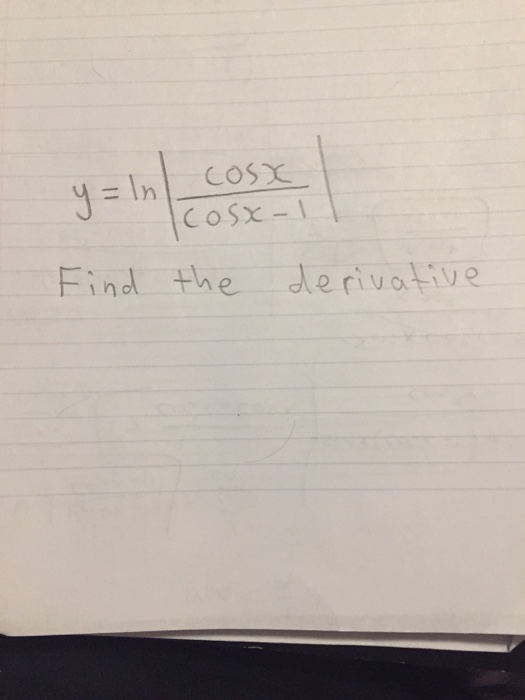 y = ln | cosx / cosx - 1 |
Find the derivative